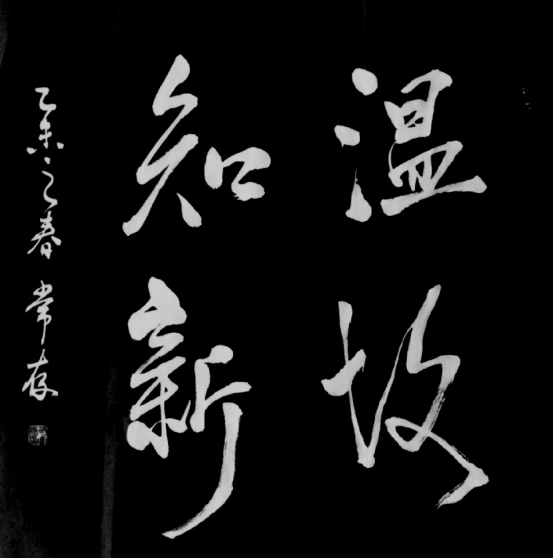 温故
知新
乙未之春 常存